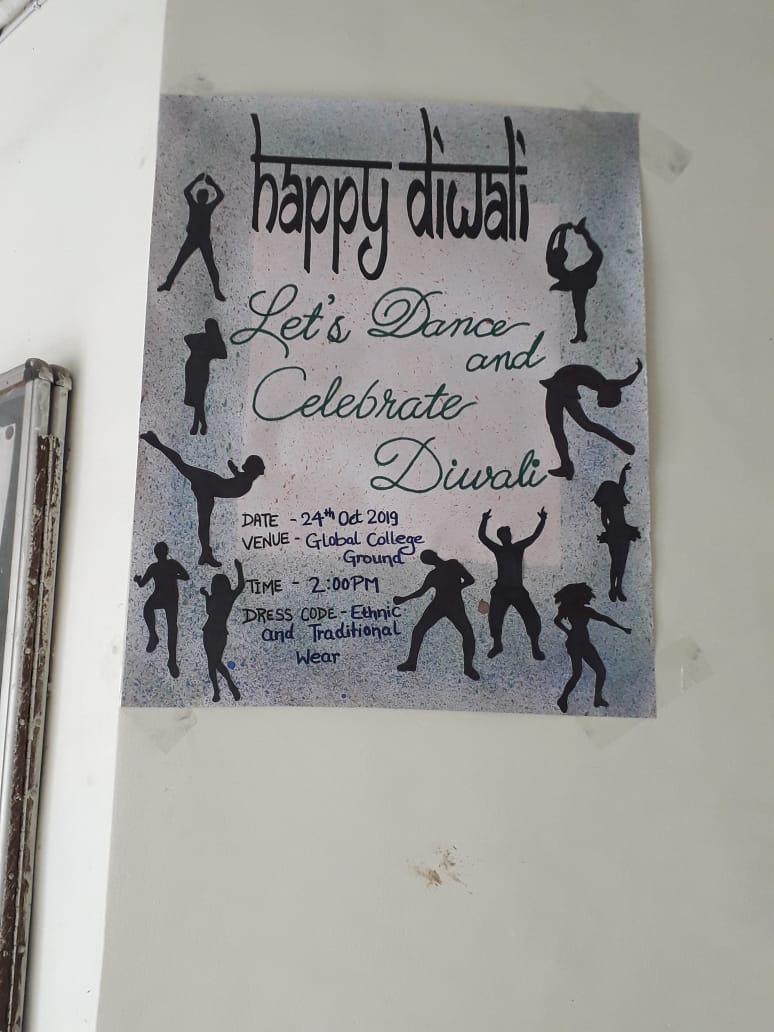 happy diwali
Let's Dance
and
Celebrate
Diwali
DATE - 24th Oct 2019
VENUE - Global College
Ground
TIME - 2:00PM
DRESS CODE - Ethnic
and Traditional
Wear